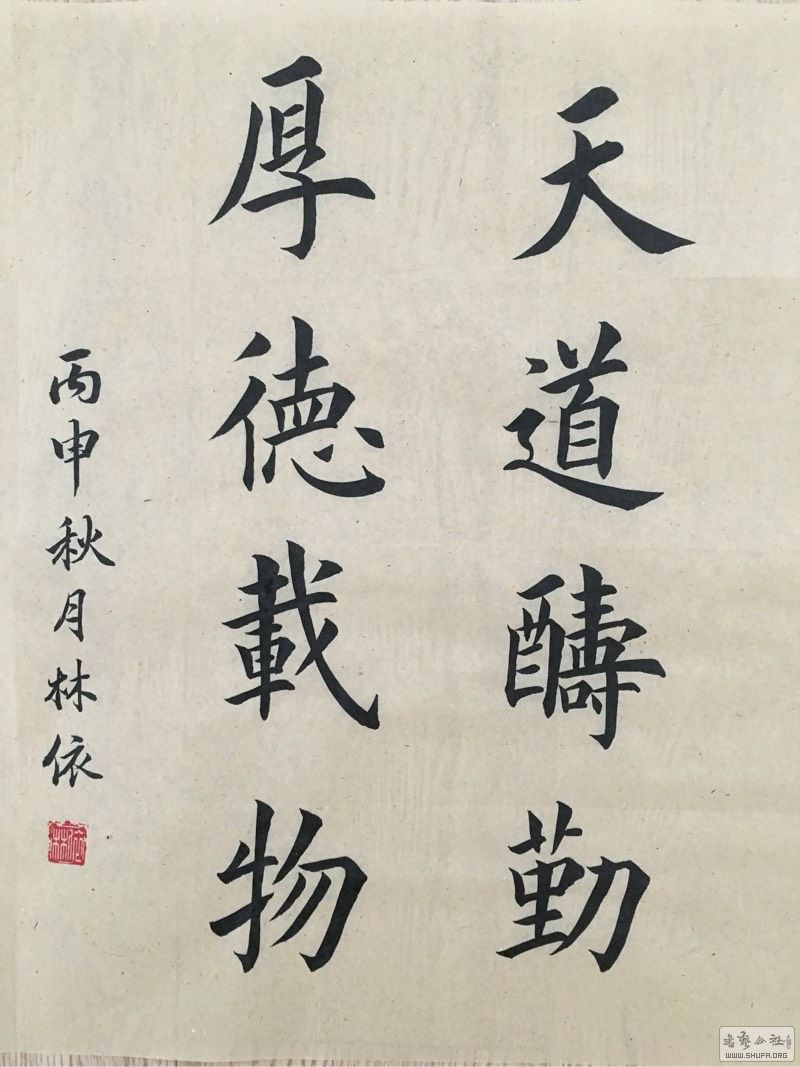 天道酬勤
厚德載物
丙申秋月林依
林依
書藝公社
WWW.SHUFA.ORG